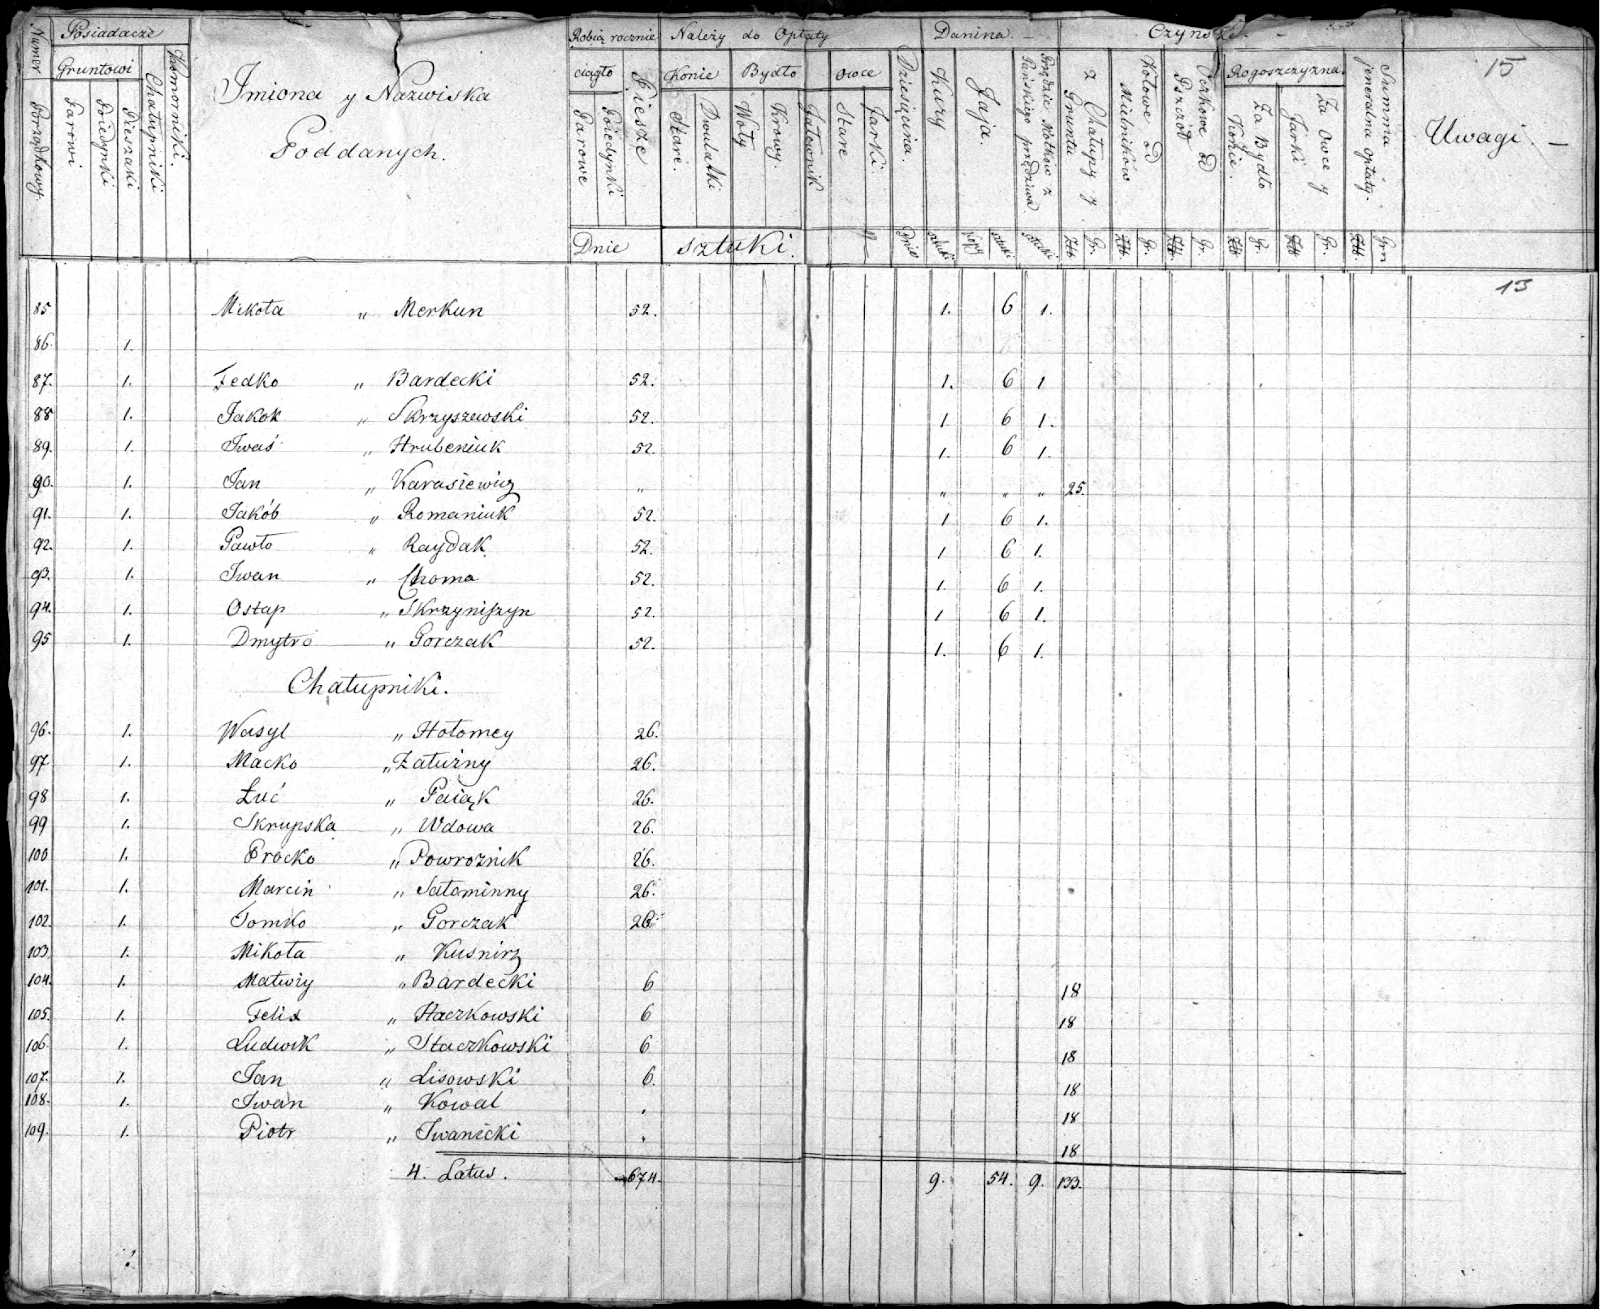 Posiadacze Robią rocznie Należy do Opłaty Danina Czynsze.
Numer Porządkowy.
Gruntowi
Parowi
Poiedynki
Pieszaki
Chałupniki
Komorniki.
Imiona y Nazwiska
Poddanych.
ciągło
Parowe
Poiedynki
Piesze
Dnie
Konie
Stare.
Dwulatki
Bydło
Woły
Krowy.
Jałownik
sztuki.
owce
Stare
Jarki.
Dziesięcina.
Kury
Jaja.
Przędzie Motków z Pańskiego przędziwa
z Chałupy y Gruntu
Kołowe od Mielników
Oczkowe od Pszczół
Rogoszczyzna.
Za Bydło Konie.
Za owce y Jarki
Summa jeneralna opłaty.
15
Uwagi. —
sztuki kopy sztuki sztuki Złt. Gr. Złt. Gr. Złt. Gr. Złt. Gr. Złt. Gr. Złt. Grn
13
85 Mikoła „ Merkun 52. 1. 6 1.
86. 1.
87. 1. Fedko „ Bardecki 52. 1. 6 1
88 1. Jakok „ Skrzyszewski 52. 1 6 1.
89. 1. Iwaś „ Hrubeniuk 52. 1. 6 1.
90. 1. Jan „ Karasiewicz „ „ „ „ 25.
91. 1. Jakób „ Romaniuk 52. 1 6 1.
92. 1. Pawło „ Raydak 52. 1 6 1.
93. 1. Iwan „ Choma 52. 1. 6 1.
94. 1. Ostap „ Skrzyniszyn 52. 1 6 1.
95 1. Dmytro „ Gorczak 52. 1. 6 1.
Chałupniki.
96. 1. Wasyl „ Hołomey 26.
97. 1. Macko „ Załuzny 26.
98 1. Łuć „ Paiąk 26.
99 1. Skrupska „ Wdowa 26.
100 1. Procko „ Powroznik 26.
101. 1. Marcin „ Sałominny 26.
102. 1. Tomko „ Gorczak 26
103. 1. Mikoła „ Kusnirz
104. 1. Matwiy „ Bardecki 6 18
105. 1. Felix „ Staczkowski 6 18
106. 1. Ludwik „ Staczkowski 6 18
107. 1. Jan „ Lisowski 6. 18
108. 1. Iwan „ Kowal „ 18
109. 1. Piotr „ Iwanicki „ 18
4. Latus. 674. 9. 54. 9. 133.